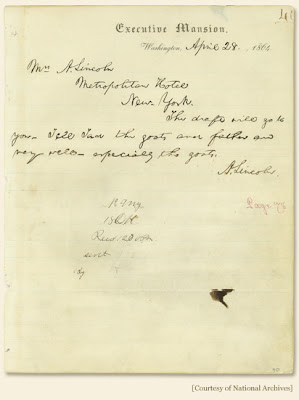 41
Executive Mansion,
Washington, April 28. 1864
Mrs A. Lincoln
Metropolitan Hotel
New-York.
The draft will go to
you. Tell Tad the goats and father are
very well—especially the goats.
A. Lincoln
[Courtesy of National Archives]